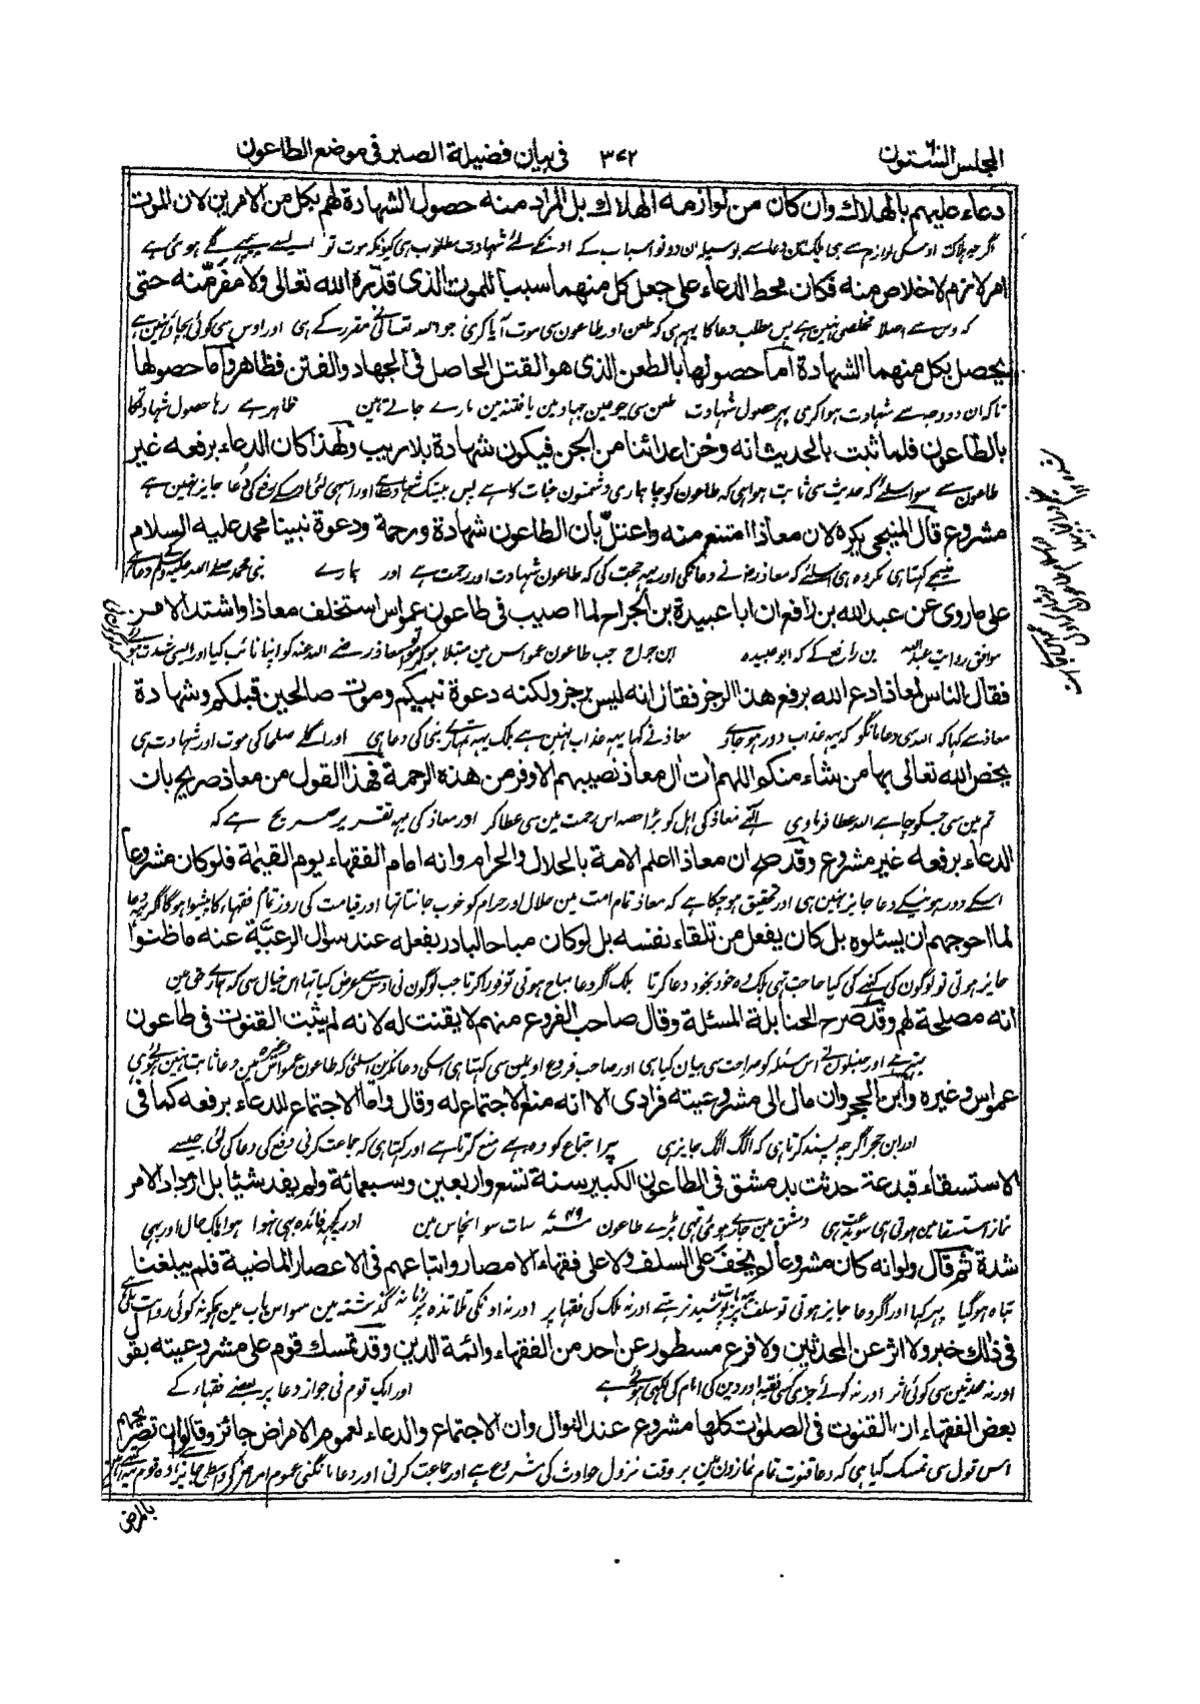 المجلس الستون ٣٧٢ فی بیان فضیلة الصبر فی موضع الطاعون
دعاء علیهم بالهلاك وان كان من لوازمه الهلاك بل المراد منه حصول الشهادة لهم بكل من الامرین لان الموت
اگرچہ ہلاکت اوسکی لوازم سے ہی بلکہ اس دعا سے بوسیلہ ان دونو اسباب کے اونکے لئے شہادت مطلوب ہی کیونکہ موت تو ایسے پیچھے لگے ہوئی ہے
امر لازم لاخلاص منه فكان محط الدعاء علی جعل كل منهما سببا للموت الذی قدّره الله تعالی ولا مفرّ منه حتی
کہ وس سے اصلا مخلصی نہین ہے پس مطلب دعا کا یہہ ہی کہ طعن اور طاعون سی موت آیا کری جو اللہ تعالی نے مقرر کے ہی اور اوس سی کوئی بچاؤ نہین ہے
یحصل بكل منهما الشهادة اما حصولها بالطعن الذی هو القتل الحاصل فی الجهاد والفتن فظاهر واما حصولها
تاکہ ان دو وجہ سے شہادت ہوا کری پہر حصول شہادت طعن سی جو مین جہاد مین یا فتنہ مین مارے جاتے ہین ظاہر ہے رہا حصول شہادت کا
بالطاعون فلما ثبت بالحدیث انه وخز اعدائنا من الجن فیكون شهادة بلا ریب ولهذا كان الدعاء برفعه غیر
طاعون سے سو اسلے کہ حدیث سی ثابت ہوا ہی کہ طاعون کوچا ہماری دشمنون جنات کا ہے پس بیشک شہادت ہے اور اسی لئی اوسکے رفع کی دعا جایز نہین ہے
مشروع قال المنبجی یكره لان معاذا امتنع منه واعتلّ بأن الطاعون شهادة ورحمة ودعوة نبینا محمد علیه السلام
منبجے کہتا ہی مکروہ ہی اسلئے کہ معاذ رض نے دعا نکی اور یہہ حجت کی کہ طاعون شہادت اور رحمت ہے اور ہمارے نبی محمد صلے اللہ علیہ وسلم دعا ہے
علی ما روی عن عبد الله بن رافع ان ابا عبیدة بن الجراح لما اصیب فی طاعون عمواس استخلف معاذا واشتد الامر
موافق روایت عبد اللہ بن رافع کے کہ ابو عبیدہ ابن جراح جب طاعون عمواس مین مبتلا ہو کر معاذ رضے اللہ عنہ کو اپنا نائب کیا اور ایسی شدت ہوئے
فقال الناس لمعاذ ادع الله برفع هذا الرجز فقال انه لیس برجز ولكنه دعوة نبیكم وموت صالحین قبلكم وشهادة
معاذ سے کہا کہ اللہ سی دعا مانگو کہ یہہ عذاب دور ہو جاوے معاذ نے کہا یہہ عذاب نہین ہے بلکہ یہہ تمہارے نبی کی دعا ہی اور اگلے صلحا کی موت اور شہادت ہی
یخص الله تعالی بها من شاء منكم اللهم ات ال معاذ نصیبهم الاوفر من هذه الرحمة فهذا القول من معاذ صریح بان
تم مین سی جسکو چاہے اللہ عطا فرماوی الہے معاذ کی اہل کو بڑا حصہ اس رحمت مین سی عطا کر اور معاذ کی یہہ تقریر صریح ہے کہ
الدعاء برفعه غیر مشروع وقد صح ان معاذا اعلم الامة بالحلال والحرام وانه امام الفقهاء یوم القیمة فلو كان مشروعا
اسکے دور ہونیکے دعا جایز نہین ہی اور تحقیق ہو چکا ہے کہ معاذ تمام امت مین حلال اور حرام کو خوب جانتا تہا اور قیامت کی روز تمام فقہاء کا پیشوا ہوگا اگر یہہ دعا
لما احوجهم ان یسئلوه بل كان یفعل من تلقاء نفسه بل لو كان مباحا لبادر بفعله عند سؤال الرعیّة عنه ما ظنوا
جایز ہوتی تو لوگون کی کہنے کی کیا حاجت تہی بلکہ وہ خود بخود دعا کرتا بلکہ اگر دعا مباح ہوتی تو فورا کرتا جب لوگون نی اوس سے عرض کیا تہا اس خیال سی کہ ہمارے حق مین
انه مصلحة لهم وقد صرح الحنابلة المسئلة وقال صاحب الفروع منهم لا یقنت له لانه لم یثبت القنوت فی طاعون
بہتر ہے اور حنبلون نے اس مسئلہ کو صراحت سی بیان کیا ہی اور صاحب فروع اونمین سی کہتا ہی اسکی دعا نکرین اسلئے کہ طاعون عمواس وغیرہ مین دعا ثابت نہین ہوئے
عمواس وغیره وابن الحجر وان مال الی مشروعیته فرادی الا انه منع الاجتماع له وقال واما الاجتماع للدعاء برفعه كما فی
اور ابن حجر اگرچہ پسند کرتا ہی کہ الگ الگ جایز ہی پر اجتماع کو وہ ہے منع کرتا ہے اور کہتا ہی کہ جماعت کرنی رفع کی دعا کی لئی جیسے
الاستسقاء فبدعة حدثت بدمشق فی الطاعون الكبیر سنة تسع واربعین وسبعمائة ولم یفد شیئا بل ازداد الامر
نماز استسقا مین ہوتی ہی سو بدعت ہی دمشق مین جاری ہوئی تہی بڑے طاعون ٧٤٩ سنہ سات سو انچاس مین اور کچہہ فائدہ بہی نہوا
شدة ثم قال ولو انه كان مشروعا لم یخف علی السلف ولا علی فقهاء الامصار واتباعهم فی الاعصار الماضیة فلم یبلغنا
تباہ ہوگیا پہر کہا اور اگر دعا جایز ہوتی تو سلف پر پوشیدہ نہ رہتے اور نہ ملک کی فقہا پر اور نہ اونکی تلامذہ پر زمانہ گذشتہ مین سو اس باب مین ہمکو نہ کوئی روایت
فی ذالك خبر ولا اثر عن المحدثین ولا فرع مسطور عن احد من الفقهاء وائمة الدین وقد تمسك قوم علی مشروعیته بقول
اور نہ محدثین سی کوئی اثر اور نہ کوئے جزی کسی فقیہ اور دین کی امام کی لکہی ہوئی ہے اور ایک قوم نی جواز دعا پر بعضے فقہاء کے
بعض الفقهاء ان القنوت فی الصلوت كلها مشروع عند النوال وان الاجتماع والدعاء لعموم الامراض جائز وقالوا
اس قول سی تمسک کیا ہی کہ دعا قنوت تمام نمازون مین بر وقت نزول حوادث کی مشروع ہے اور جماعت کرنی اور دعا مانگنی عموم امراض کے واسطے جایز
بالمرض